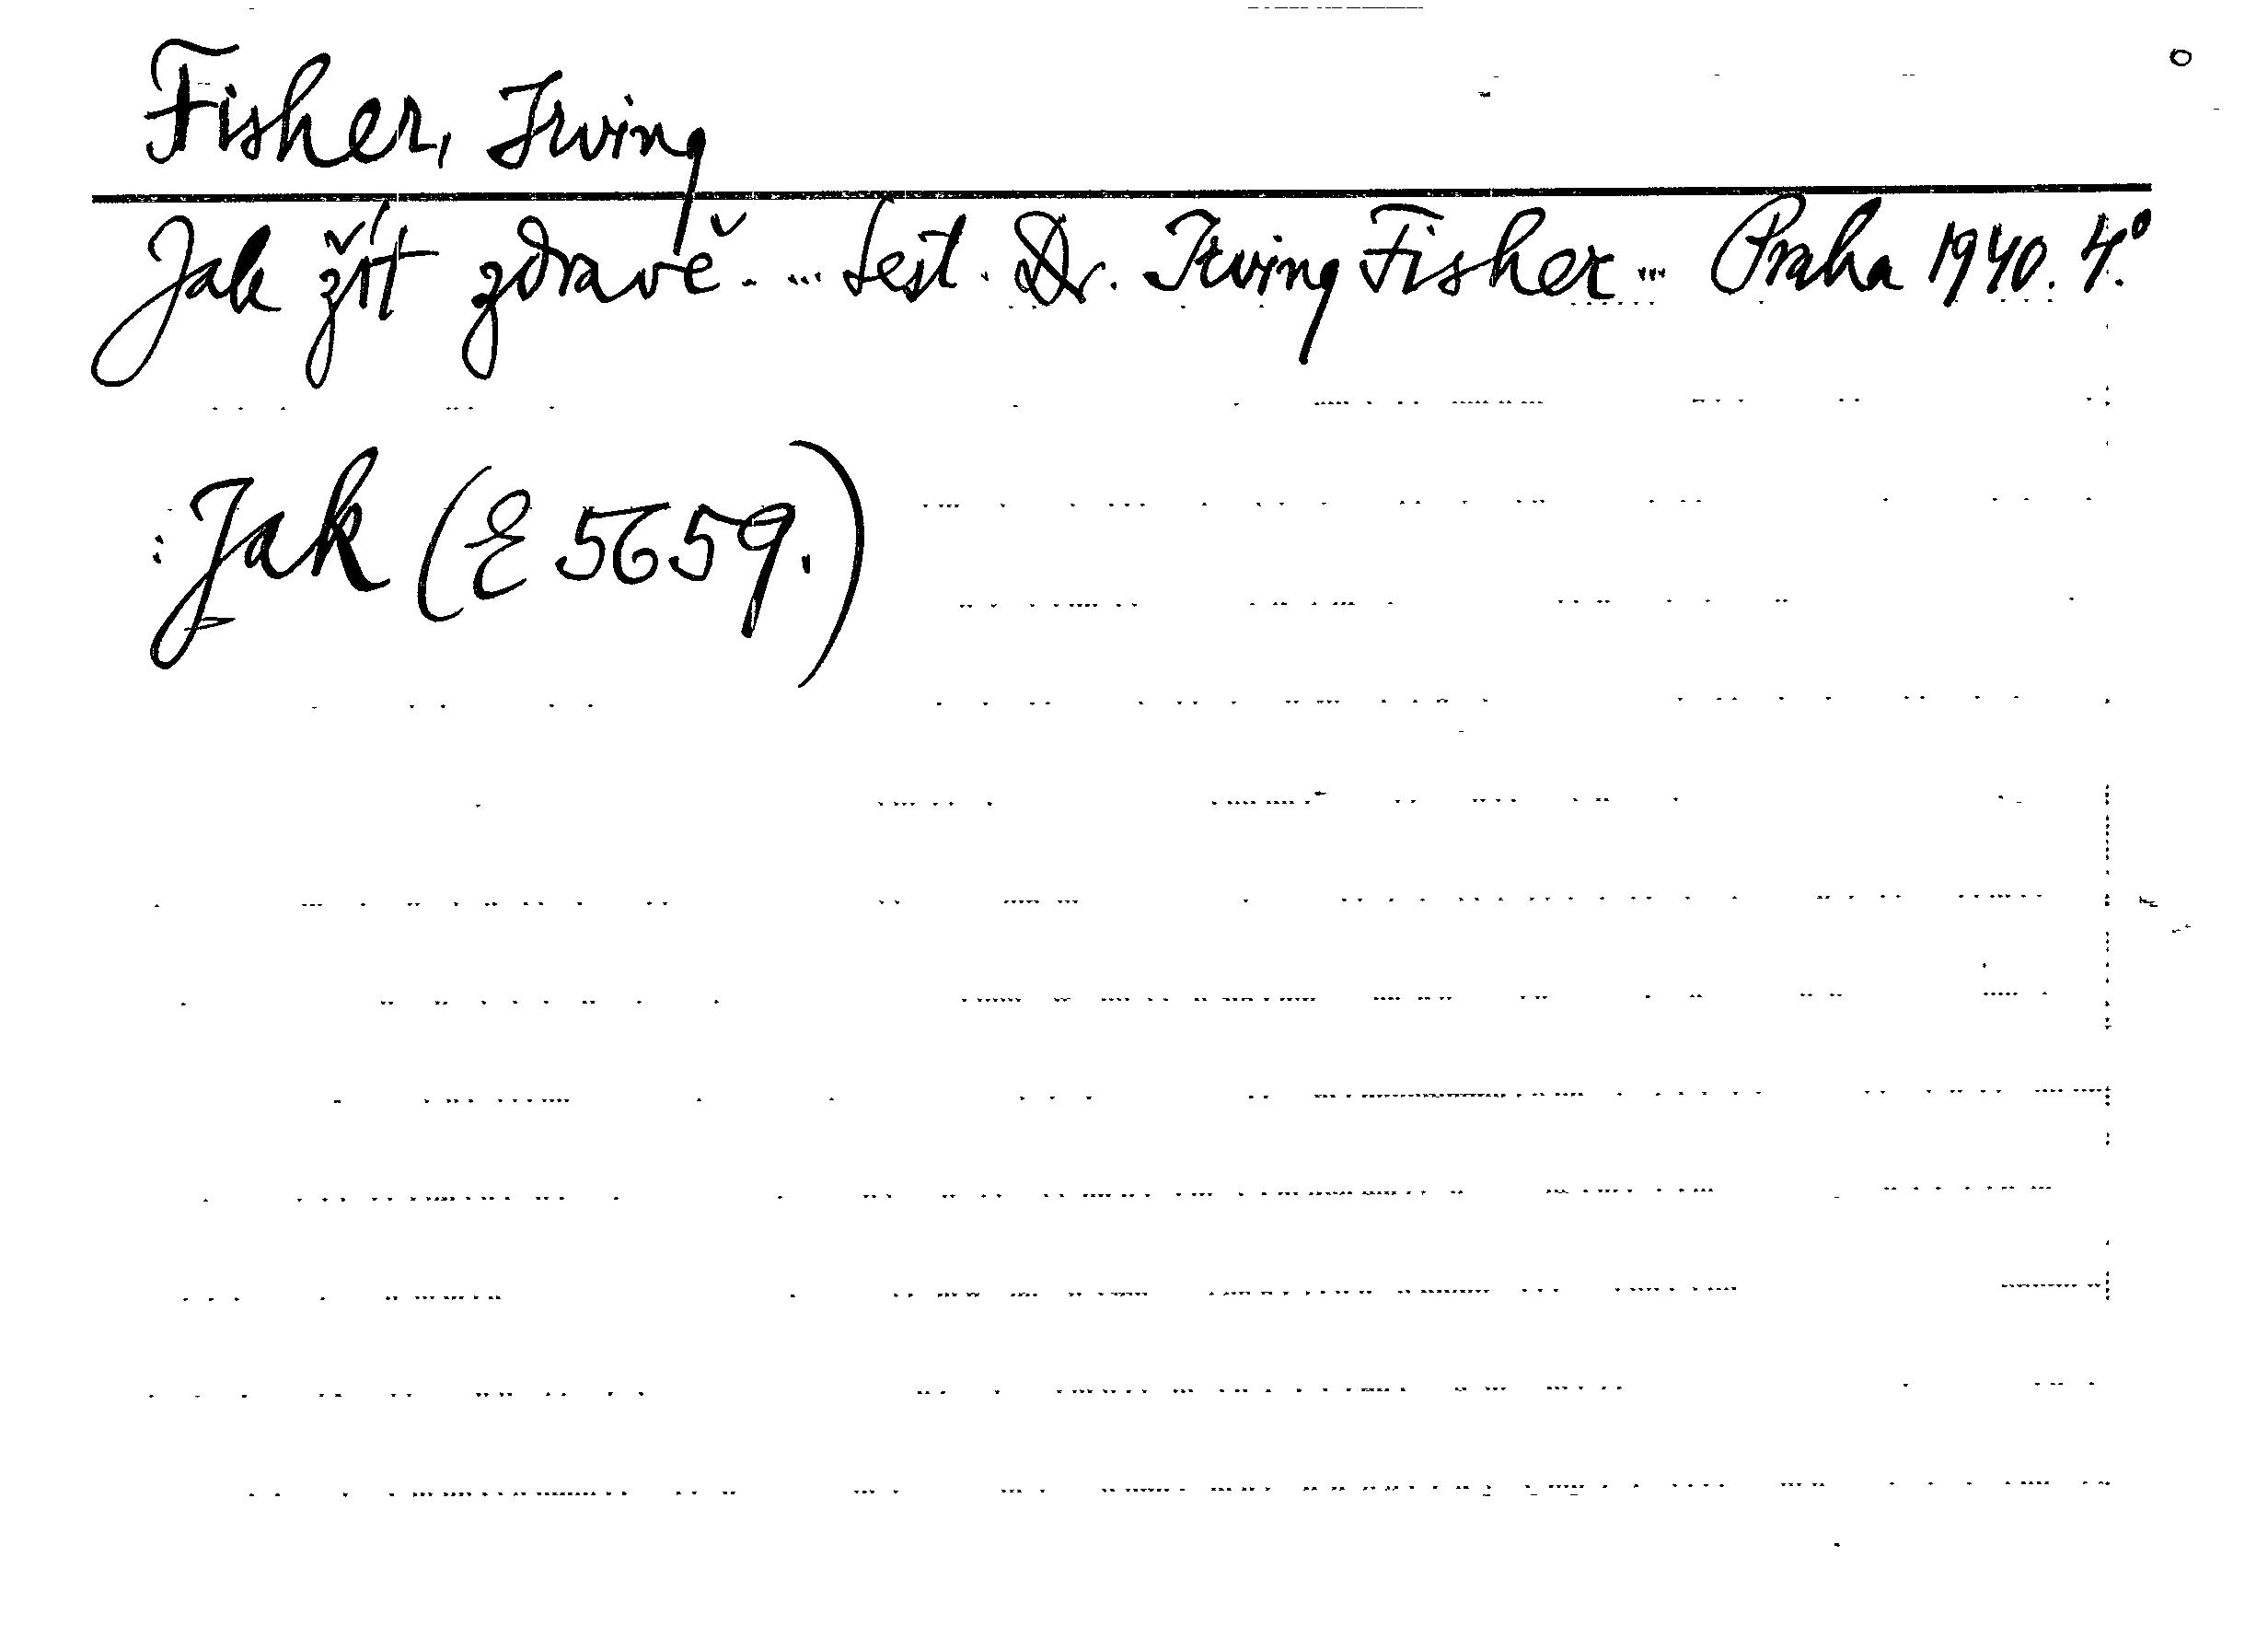 Fisher, Irving
Jak žít zdravě. ... Sest. Dr. Irving Fisher ... Praha 1940. 4.°
: Jak (E 5659.)